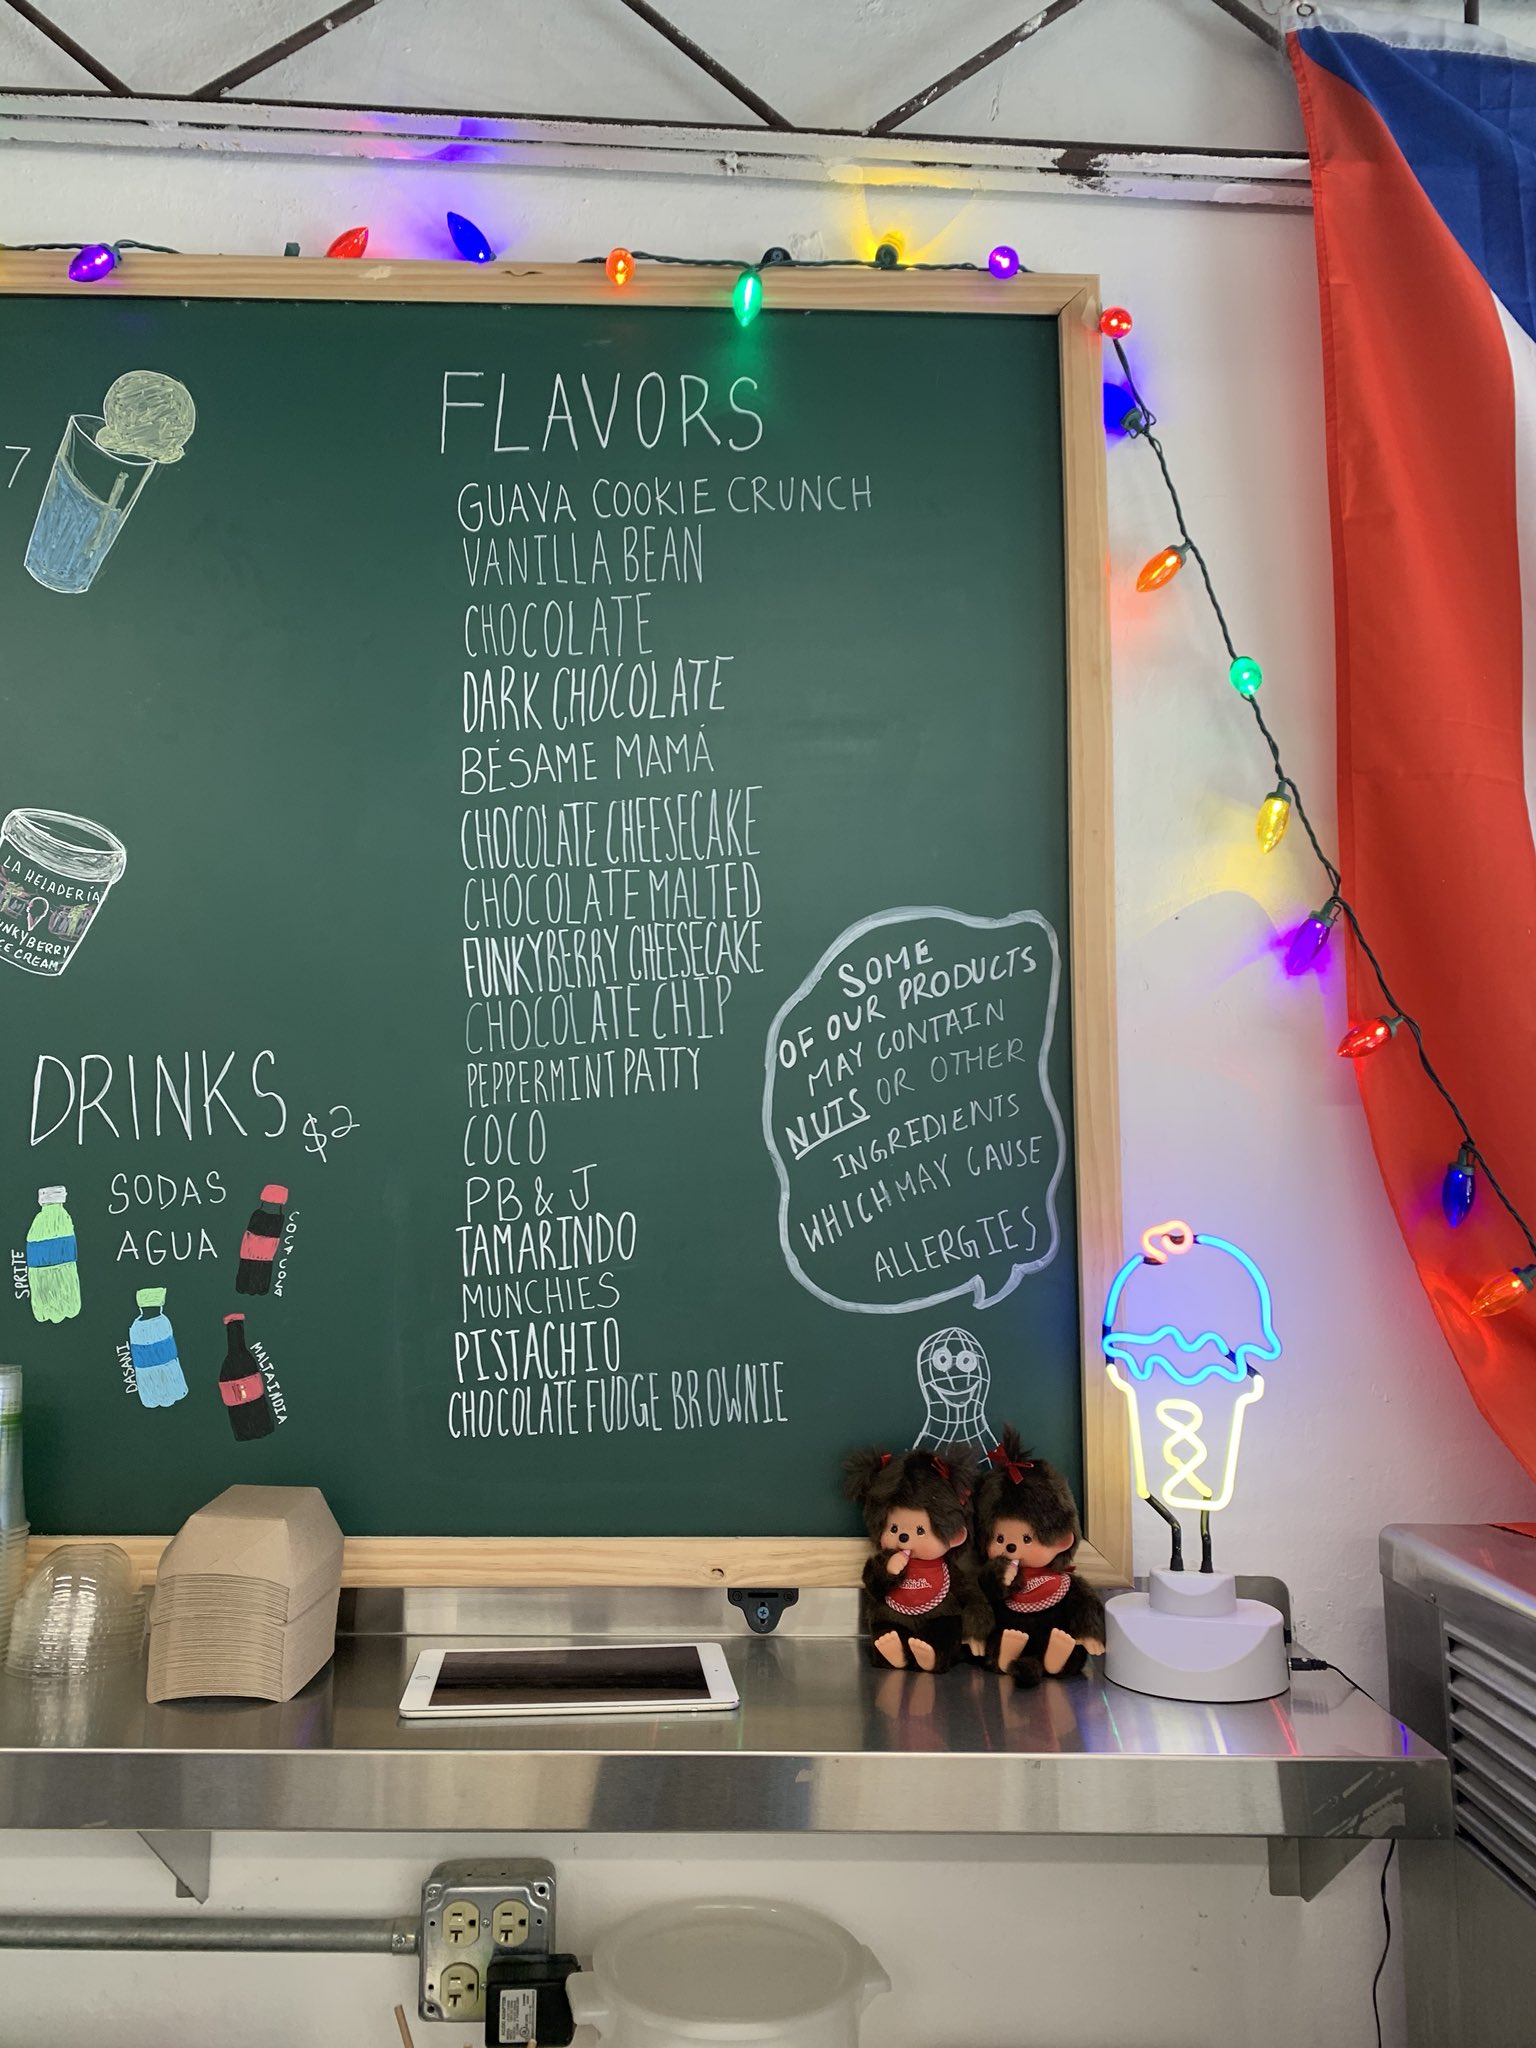 7
FLAVORS
GUAVA COOKIE CRUNCH
VANILLA BEAN
CHOCOLATE
DARK CHOCOLATE
BÉSAME MAMÁ
CHOCOLATE CHEESECAKE
CHOCOLATE MALTED
FUNKYBERRY CHEESECAKE
CHOCOLATE CHIP
PEPPERMINT PATTY
COCO
PB & J
TAMARINDO
MUNCHIES
PISTACHIO
CHOCOLATE FUDGE BROWNIE
LA HELADERÍA
UNKYBERRY
CE CREAM
DRINKS $2
SODAS
AGUA
SPRITE
COCA COLA
DASANI
MALTA INDIA
SOME
OF OUR PRODUCTS
MAY CONTAIN
NUTS OR OTHER
INGREDIENTS
WHICH MAY CAUSE
ALLERGIES